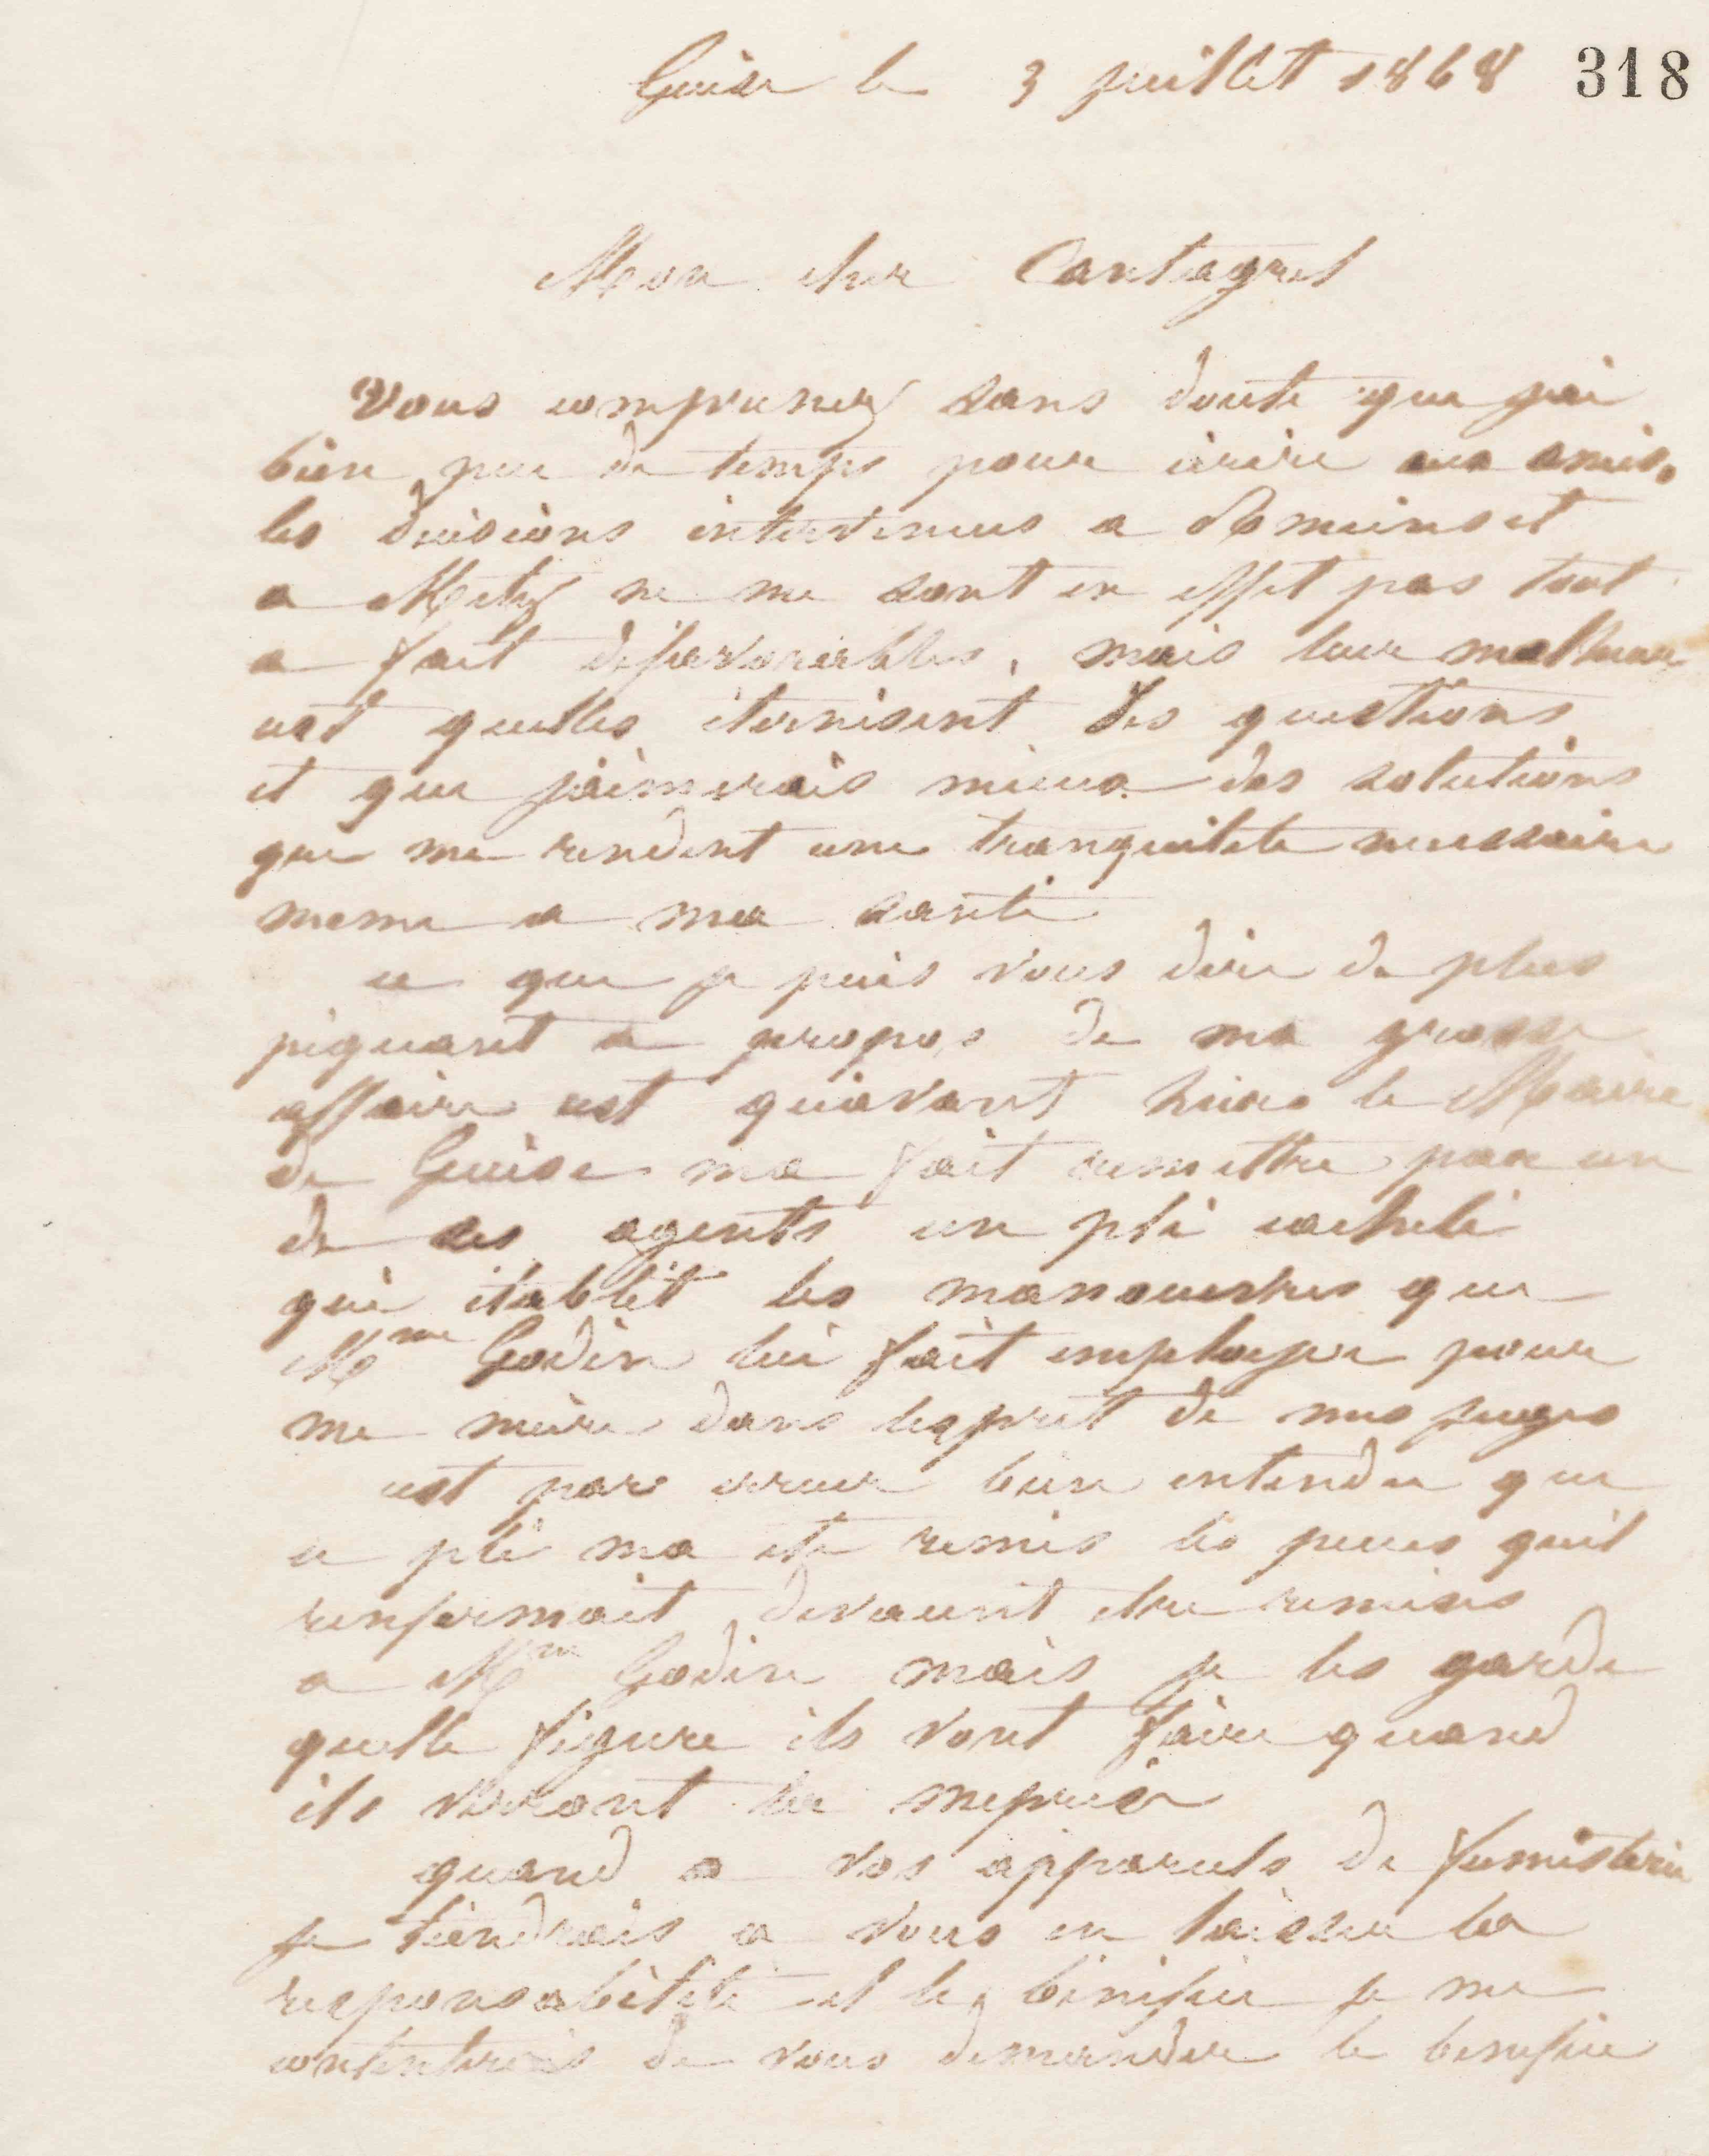 Guise le 3 juillet 1868 318
Mon cher Cantagrel
Vous comprenez sans doute que jai
bien peu de temps pour écrire aux amis.
les décisions intervenues a et
a Metz ne me sont en effet pas tout
a fait défavorables, mais leur malheur
est quelles éternisent des questions
et que jaimerais mieux des solutions
qui me rendent une tranquilité necessaire
meme a ma santé
ce que je puis vous dire de plus
piquant a propos de ma grosse
affaire est quavant hier le Maire
de Guise ma fait remettre par un
de ses agents un pli cacheté
qui établit les manoeuvres que
Mme Godin lui fait employer pour
me nuire dans lesprit de mes juges
cest par erreur bien entendu que
ce pli ma été remis les pieces quil
renfermait devaient etre remises
a Mme Godin mais je les garde
quelle figure ils vont faire quand
ils verront la meprise
quand a vos appareils de fumisterie
je tiendrais a vous en laisser la
responsabilité et le bénifice je me
contenterais de vous demander le benefice